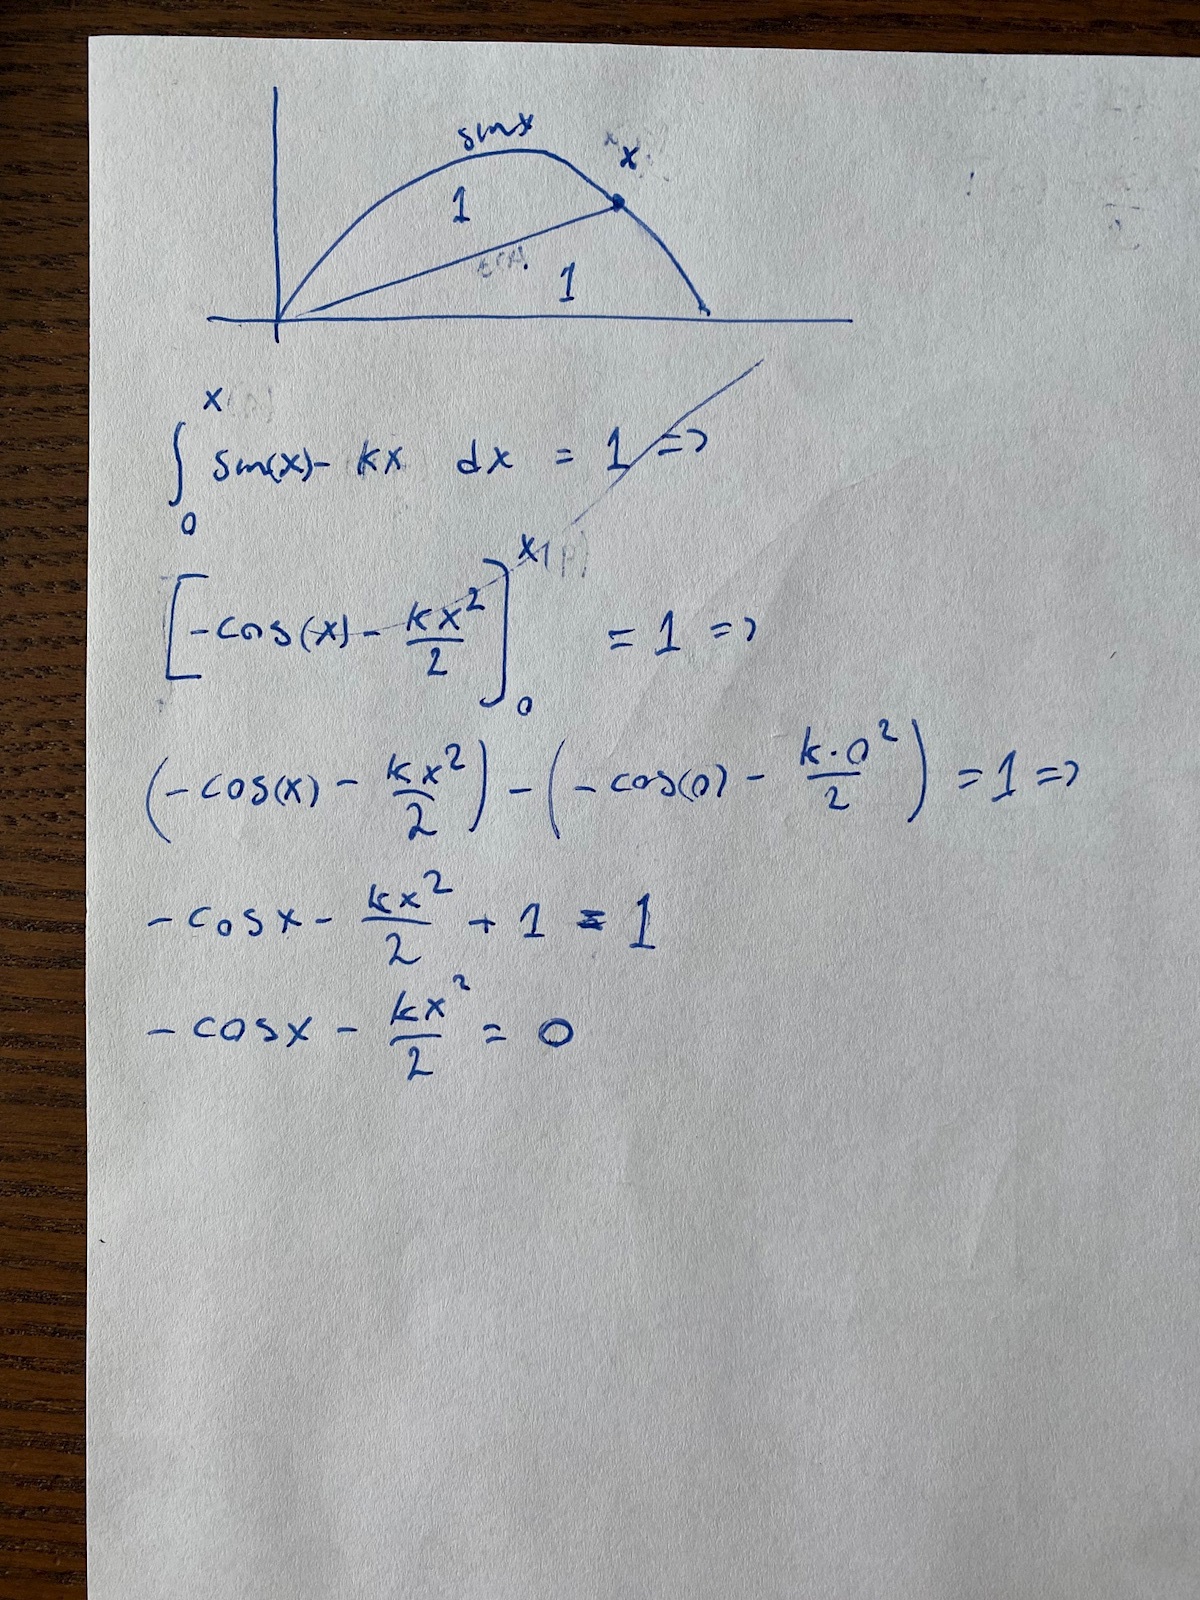 sinx
x
1
1
x
∫ sin(x) - kx dx = 1 =>
0
[-cos(x) - kx²/2]
x
0
= 1 =>
(-cos(x) - kx²/2) - (-cos(0) - k·0²/2) = 1 =>
-cosx - kx²/2 + 1 = 1
-cosx - kx²/2 = 0